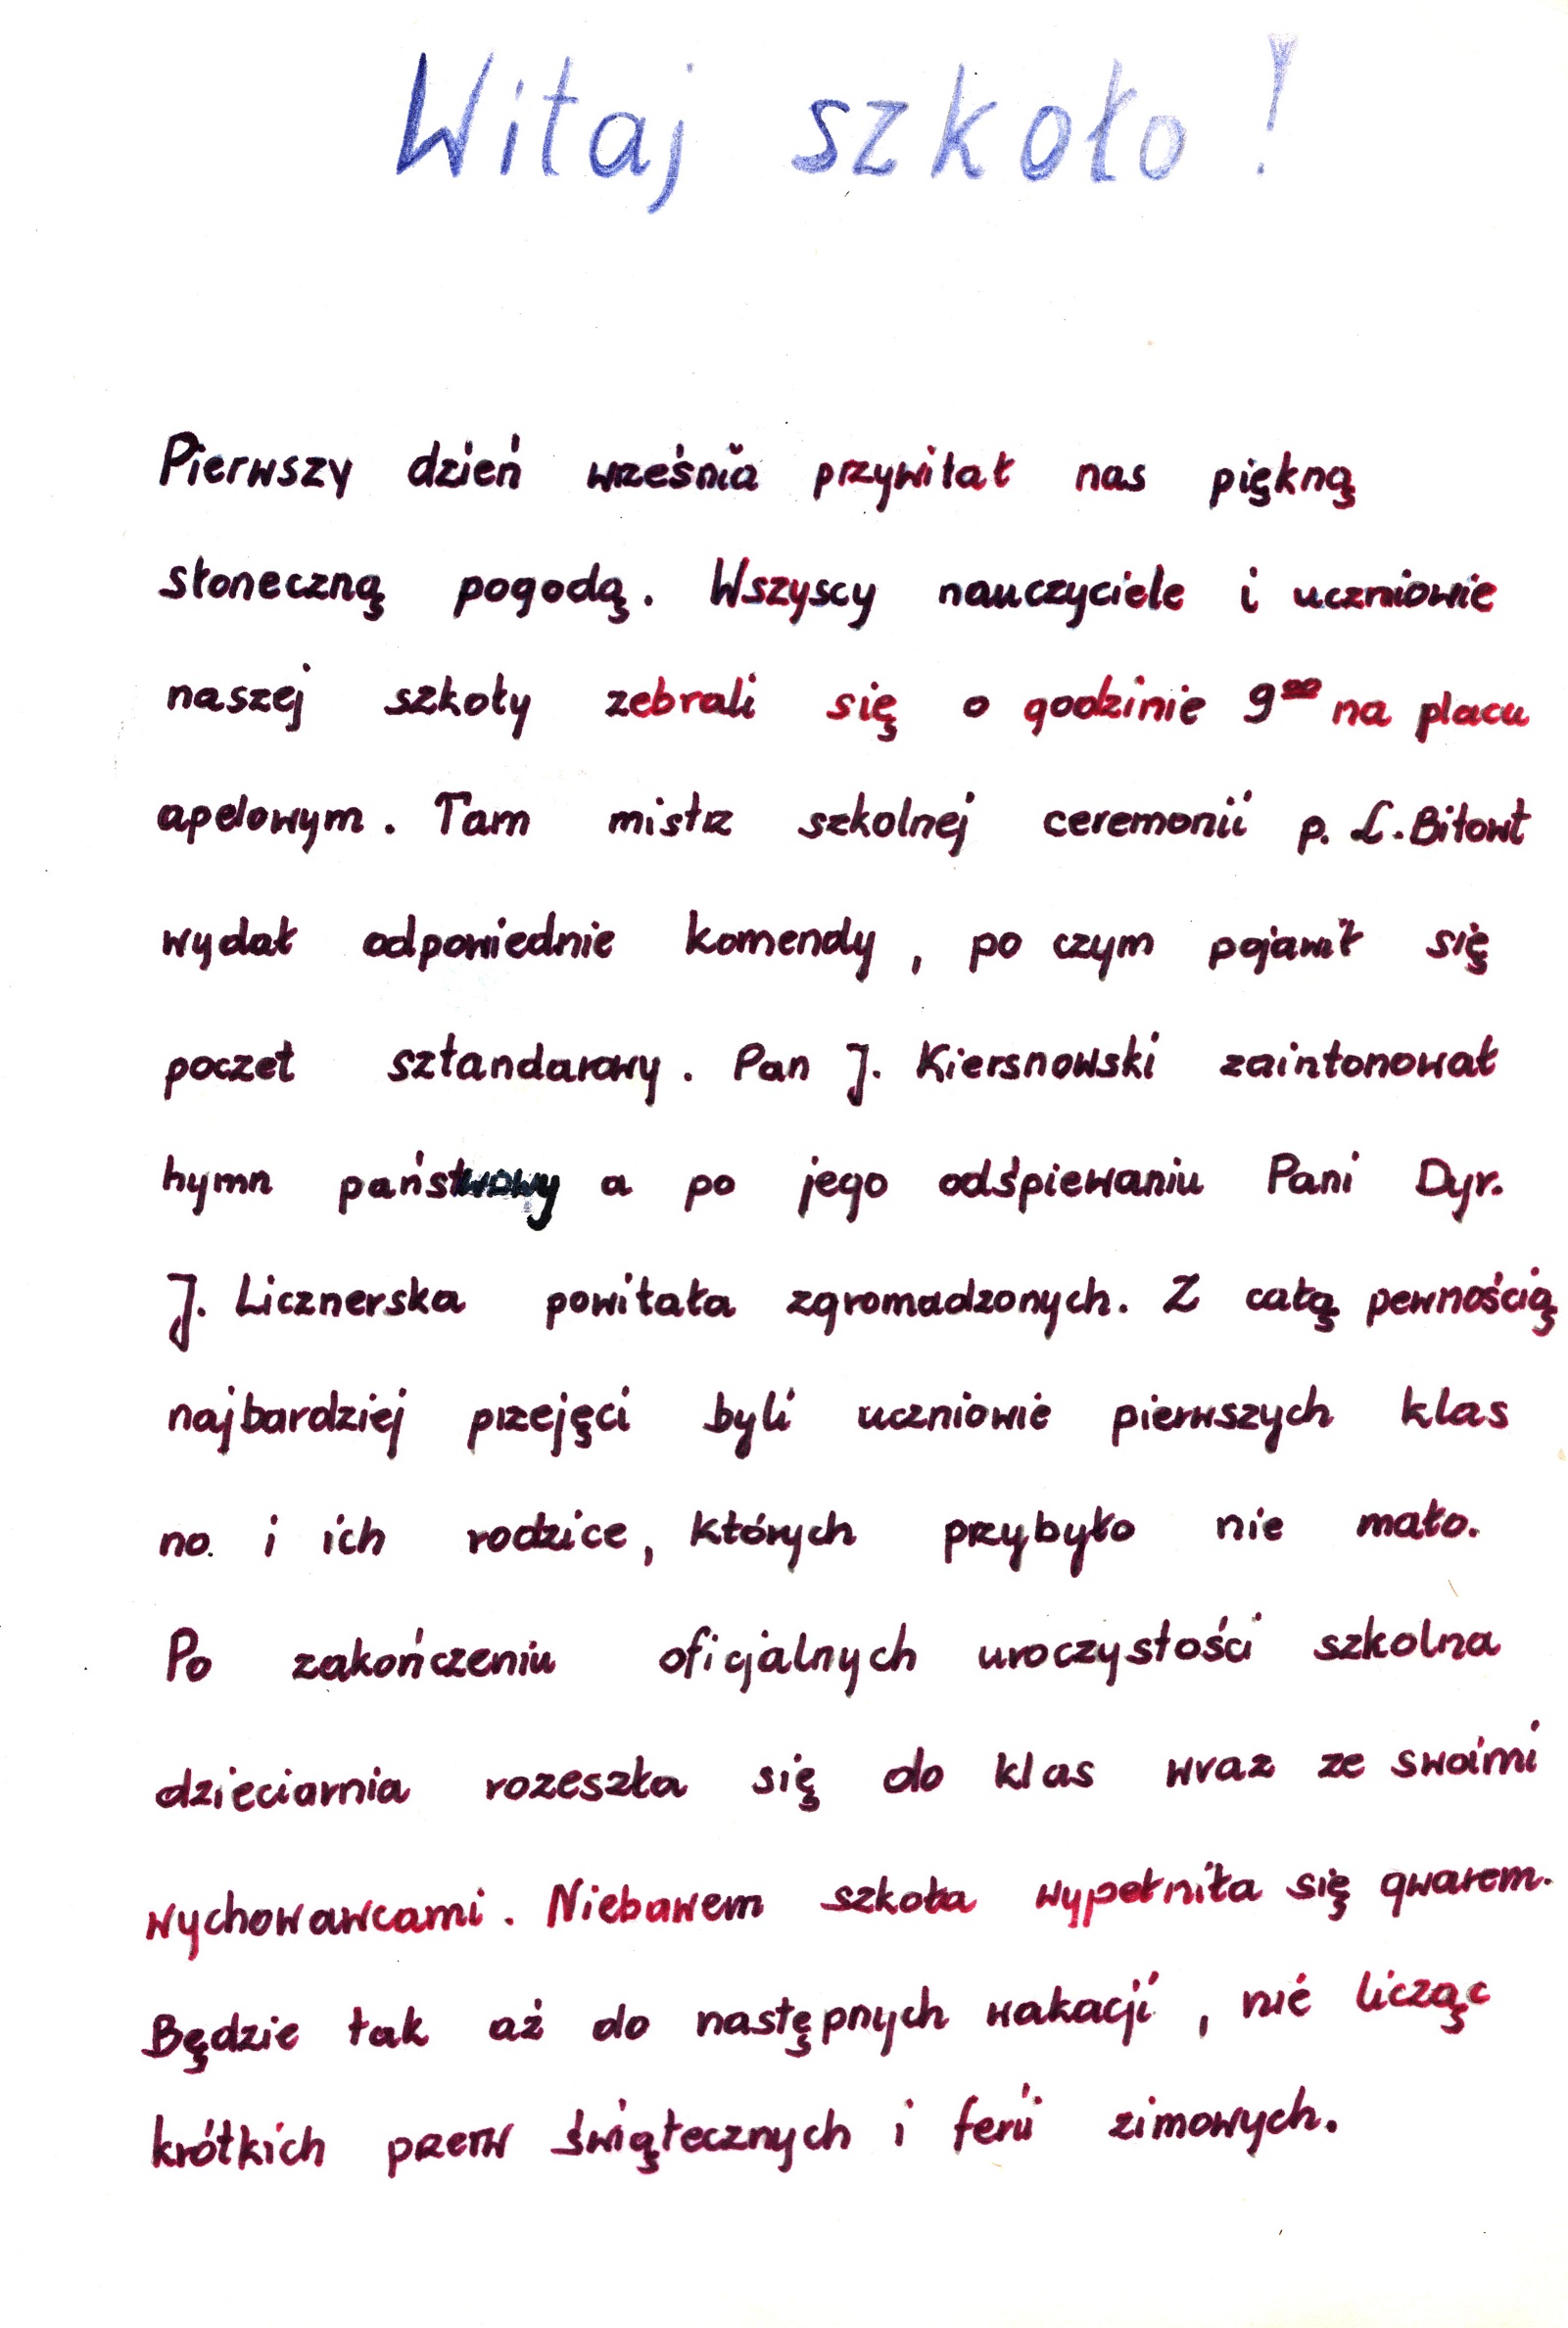 Witaj szkoło!
Pierwszy dzień września przywitał nas piękną
słoneczną pogodą. Wszyscy nauczyciele i uczniowie
naszej szkoły zebrali się o godzinie 9⁰⁰ na placu
apelowym. Tam mistrz szkolnej ceremonii p. L. Bitowt
wydał odpowiednie komendy, po czym pojawił się
poczet sztandarowy. Pan J. Kiersnowski zaintonował
hymn państwowy a po jego odśpiewaniu Pani Dyr.
J. Licznerska powitała zgromadzonych. Z całą pewnością
najbardziej przejęci byli uczniowie pierwszych klas
no. i ich rodzice, których przybyło nie mało.
Po zakończeniu oficjalnych uroczystości szkolna
dzieciarnia rozeszła się do klas wraz ze swoimi
wychowawcami. Niebawem szkoła wypełniła się gwarem.
Będzie tak aż do następnych wakacji, nie licząc
krótkich przerw świątecznych i ferii zimowych.